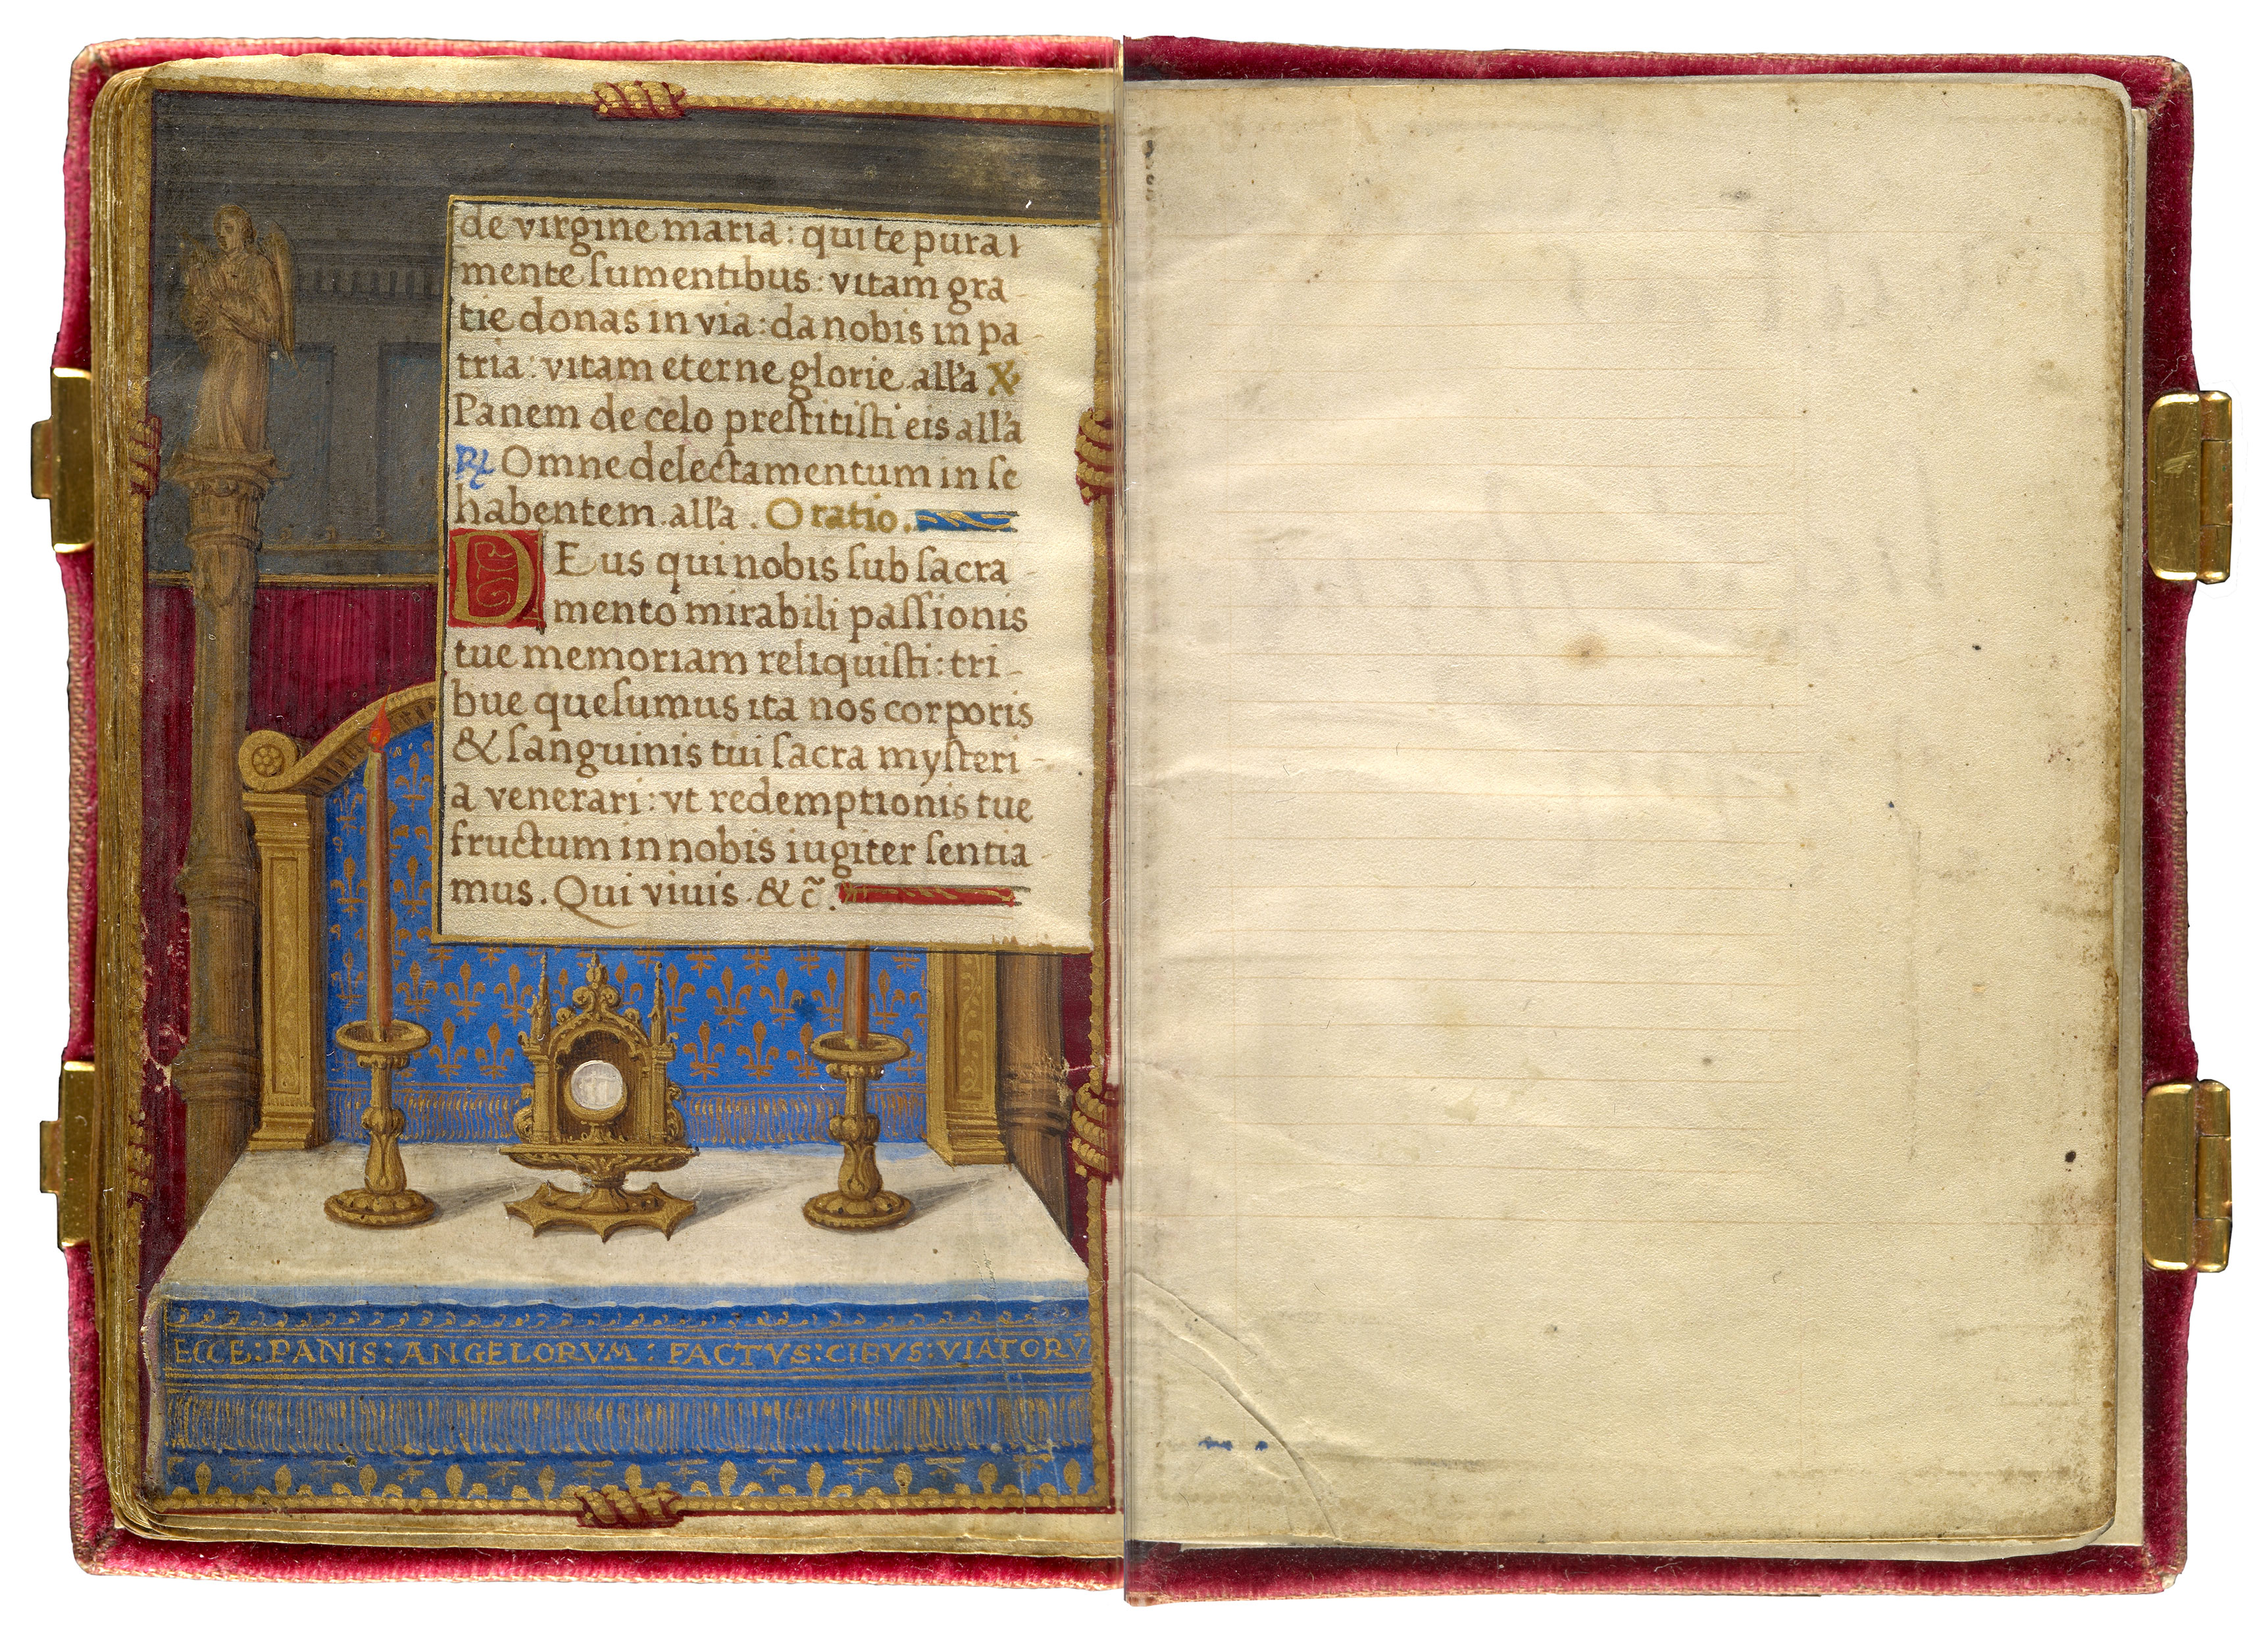 de virgine maria : qui te pura
mente ſumentibus : vitam gra-
tie donas in via : da nobis in pa-
tria : vitam eterne glorie . all'a
Panem de celo preſtitiſti eis all'a
℟ Omne delectamentum in ſe
habentem . all'a . Oratio .
DEus qui nobis ſub ſacra-
mento mirabili paſſionis
tue memoriam reliquiſti : tri-
bue queſumus ita nos corporis
& ſanguinis tui ſacra myſteri-
a venerari : vt redemptionis tue
fructum in nobis iugiter ſentia-
mus . Qui viuis . & c̃ .
ECCE : PANIS : ANGELORVM : FACTVS : CIBVS : VIATORV̄